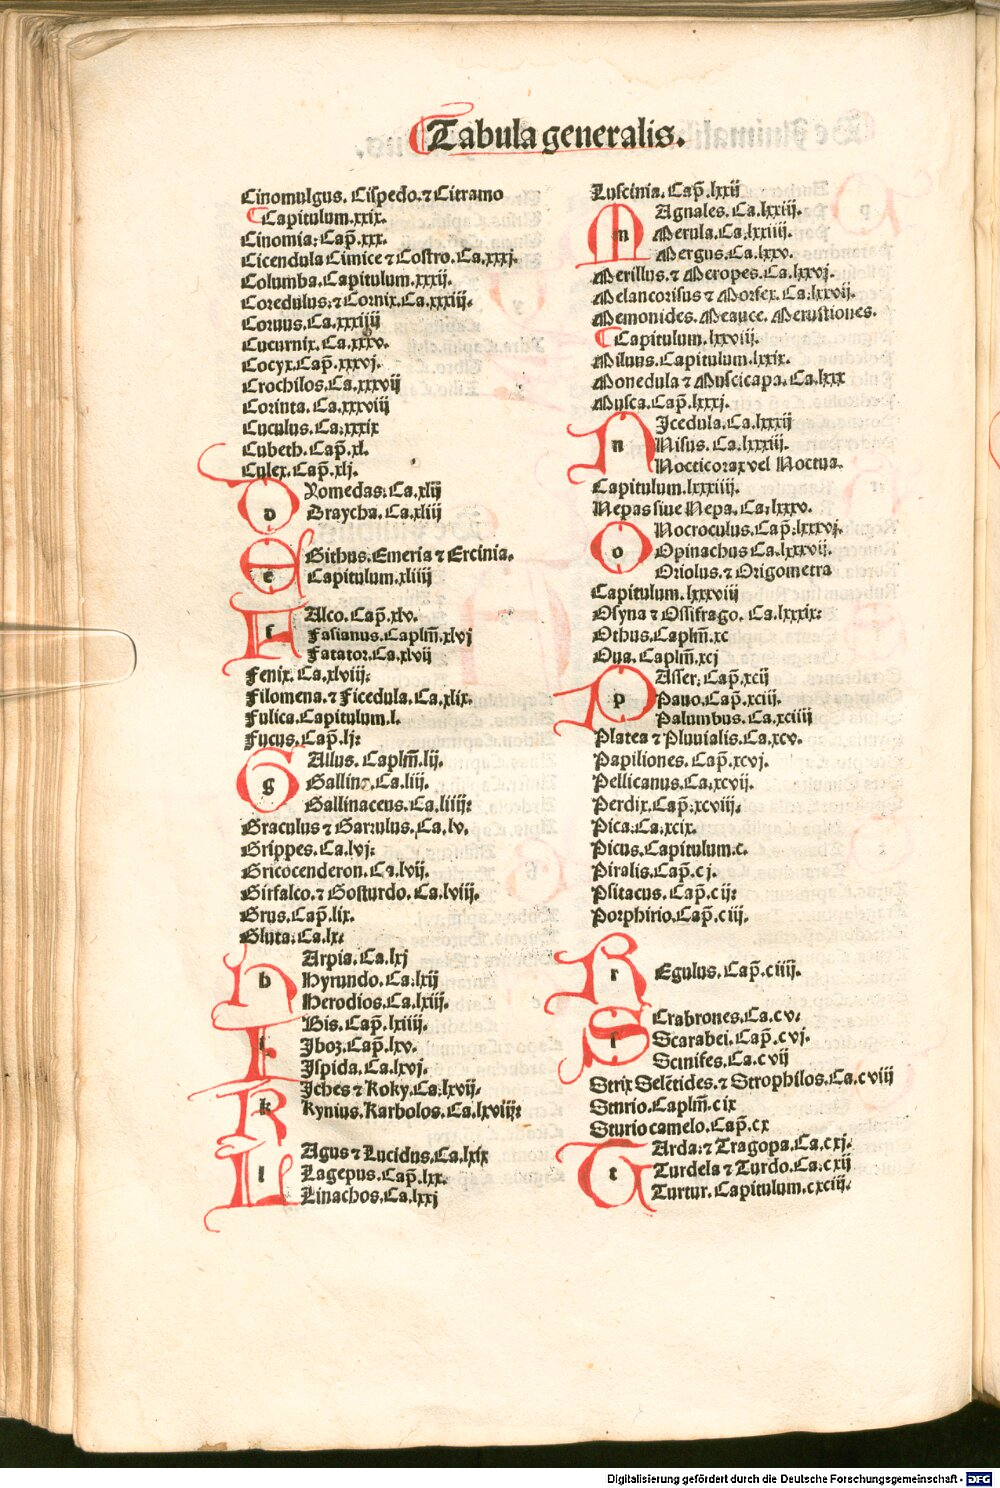 Tabula generalis.
Cinomulgus. Cispedo. ⁊ Citramo
Capitulum. xxix.
Cinomia. Cap̃. xxx.
Cicendula Cimice ⁊ Costro. Ca. xxxj.
Columba. Capitulum. xxxij.
Coredulus: ⁊ Cornix. Ca. xxxiij.
Coruus. Ca. xxxiiij
Cucurnix. Ca. xxxv.
Cocyx. Cap̃. xxxvj.
Crochilos. Ca. xxxvij
Corinta. Ca. xxxviij
Cuculus. Ca. xxxix
Cubeth. Cap̃. xl.
Culex. Cap̃. xlj.
d Romedas: Ca. xlij
Draycha. Ca. xliij
e Githus. Emeria ⁊ Ercinia.
Capitulum. xliiij
f Alco. Cap̃. xlv.
Fasianus. Caplm̃. xlvj
Fatator. Ca. xlvij
Fenix. Ca. xlviij:
Filomena. ⁊ Ficedula. Ca. xlix.
Fulica. Capitulum. l.
Fucus. Cap̃. lj:
g Allus. Caplm̃. lij.
Gallina. Ca. liij.
Gallinaceus. Ca. liiij:
Graculus ⁊ Garrulus. Ca. lv.
Grippes. Ca. lvj:
Gricocenderon. Ca. lvij.
Girfalco. ⁊ Gosturdo. Ca. lviij.
Grus. Cap̃. lix.
Gluta: Ca. lx:
h Arpia. Ca. lxj
Hyrundo. Ca. lxij
Herodios. Ca. lxiij.
i Bis. Cap̃. lxiiij.
Iboz. Cap̃. lxv.
Ispida. Ca. lxvj.
Iches ⁊ Koky. Ca. lxvij.
k Kynius. Karbolos. Ca. lxviij:
l Agus ⁊ Lucidus. Ca. lxix
Lagepus. Cap̃. lxx.
Linachos. Ca. lxxj
Luscinia. Cap̃. lxxij
m Agnales. Ca. lxxiij.
Merula. Ca. lxxiiij.
Mergus. Ca. lxxv.
Merillus. ⁊ Meropes. Ca. lxxvj.
Melancorisus ⁊ Morfex. Ca: lxxvij.
Memonides. Meauce. Merustiones.
Capitulum. lxxviij.
Miluus. Capitulum. lxxix.
Monedula ⁊ Muscicapa. Ca. lxxx
Musca. Cap̃. lxxxj.
n Icedula. Ca. lxxxij
Nisus. Ca. lxxxiij.
Nocticorax vel Noctua.
Capitulum. lxxxiiij.
Nepas siue Nepa. Ca. lxxxv.
o Nocroculus. Cap̃: lxxxvj.
Opinachus Ca. lxxxvij.
Oriolus. ⁊ Origometra
Capitulum. lxxxviij
Osyna ⁊ Ossifrago. Ca. lxxxix:
Othus. Caplm̃. xc
Oua. Caplm̃. xcj
p Asser: Cap̃. xcij
Pauo. Cap̃. xciij.
Palumbus. Ca. xciiij
Platea ⁊ Pluuialis. Ca. xcv.
Papiliones. Cap̃. xcvj.
Pellicanus. Ca. xcvij.
Perdix. Cap̃. xcviij.
Pica: Ca: xcix.
Picus. Capitulum. c.
Piralis. Cap̃. cj.
Psitacus. Cap̃. cij:
Porphirio. Cap̃. ciij.
r Egulus. Cap̃. ciiij.
s Crabrones. Ca. cv.
Scarabei. Cap̃. cvj.
Scinifes. Ca. cvij
Strix Selẽtides. ⁊ Strophilos. Ca. cviij
Sturio. Caplm̃. cix
Sturio camelo. Cap̃. cx
t Arda: ⁊ Tragopa. Ca. cxj.
Turdela ⁊ Turdo. Ca: cxij
Turtur. Capitulum. cxciij.
Digitalisierung gefördert durch die Deutsche Forschungsgemeinschaft - DFG